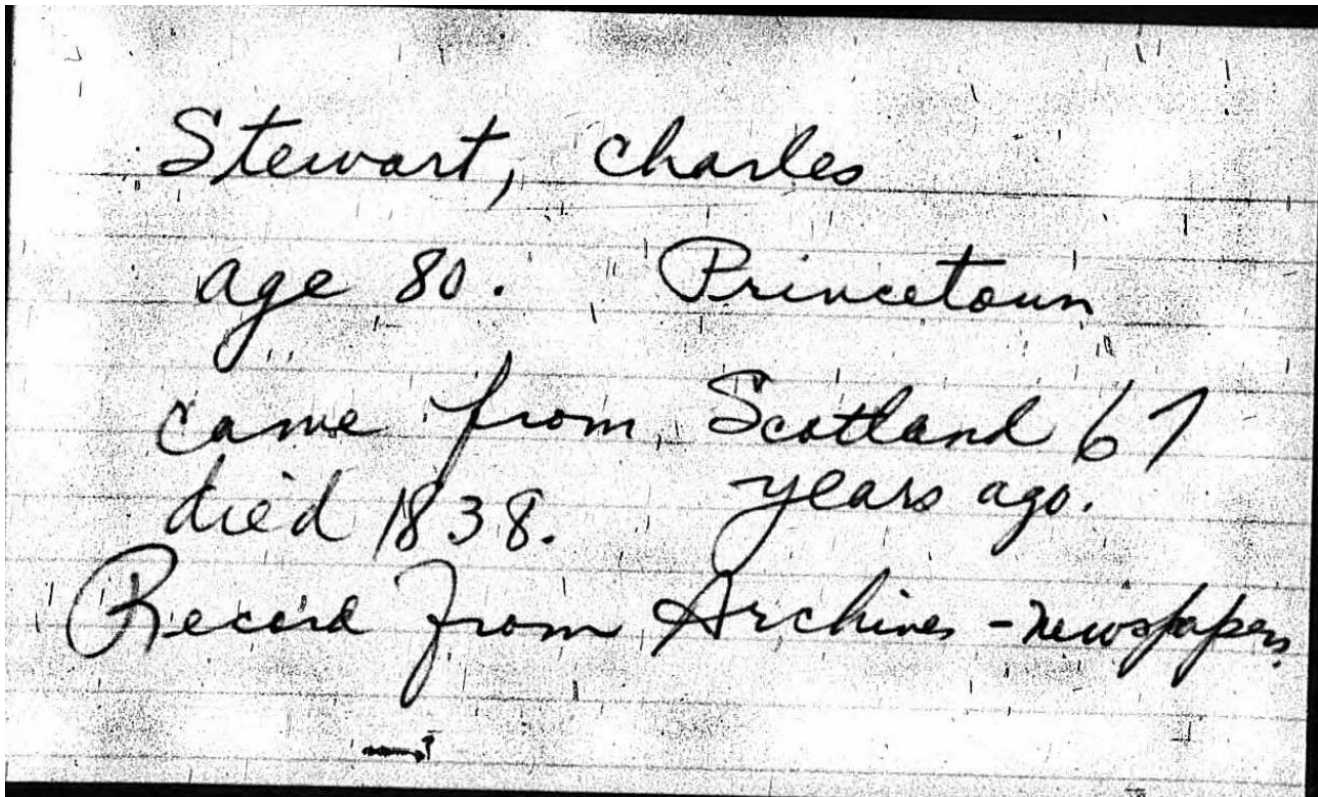 Stewart, Charles
age 80. Princetown
came from Scotland 67
died 1838. years ago.
Record from Archives - newspapers.